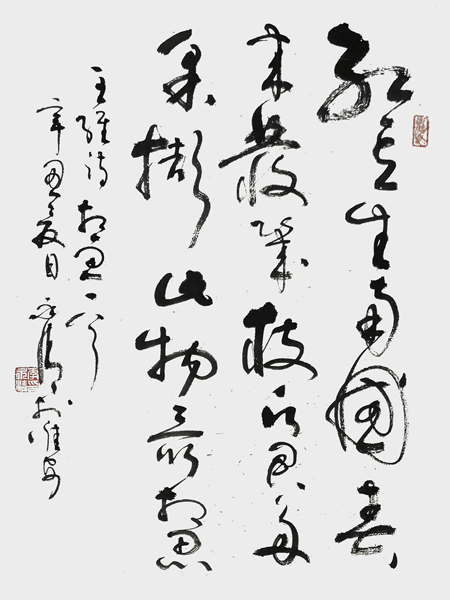 紅豆生南國春
来發幾枝願君多
采撷此物最相思
王維詩相思一首
辛丑夏日